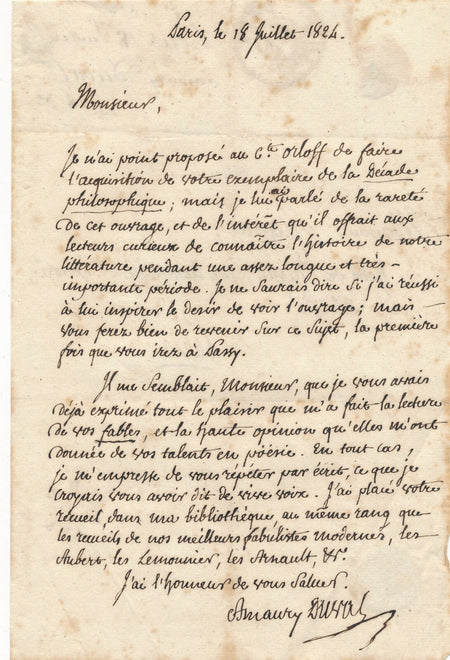 Paris, le 18 Juillet 1824.
Monsieur,
Je n'ai point proposé au Cte Orloff de faire
l'acquisition de votre exemplaire de la Décade
philosophique; mais je lui ai parlé de la rareté
de cet ouvrage, et de l'intérêt qu'il offrait aux
lecteurs curieux de connaître l'histoire de notre
littérature pendant une assez longue et très-
importante période. Je ne saurais dire si j'ai réussi
à lui inspirer le desir de voir l'ouvrage; mais
vous ferez bien de revenir sur ce sujet, la première
fois que vous irez à Passy.
Il me semblait, Monsieur, que je vous avais
déjà exprimé tout le plaisir que m'a fait la lecture
de vos fables, et la haute opinion qu'elles m'ont
donnée de vos talents en poésie. En tout cas,
je m'empresse de vous répéter par écrit, ce que je
croyais vous avoir dit de vive voix. J'ai placé votre
recueil, dans ma bibliothèque, au même rang que
les recueils de nos meilleurs fabulistes modernes, les
Aubert, les Lemonnier, les Arnault, &c.
J'ai l'honneur de vous saluer.
Amaury DUVAL